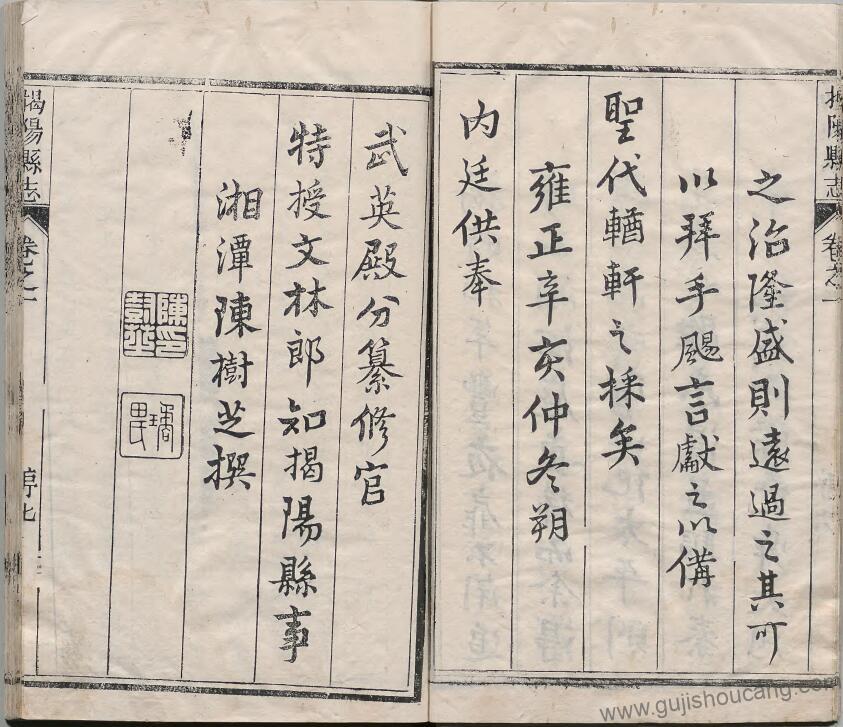 揭陽縣志
卷之一
之治隆盛則遠過之其可
以拜手颺言獻之以備
聖代輶軒之採矣
雍正辛亥仲冬朔
內廷供奉
武英殿分纂修官
特授文林郎知揭陽縣事
湘潭陳樹芝撰
陳印
揭陽縣志
卷之一
序七
www.gujishoucang.com